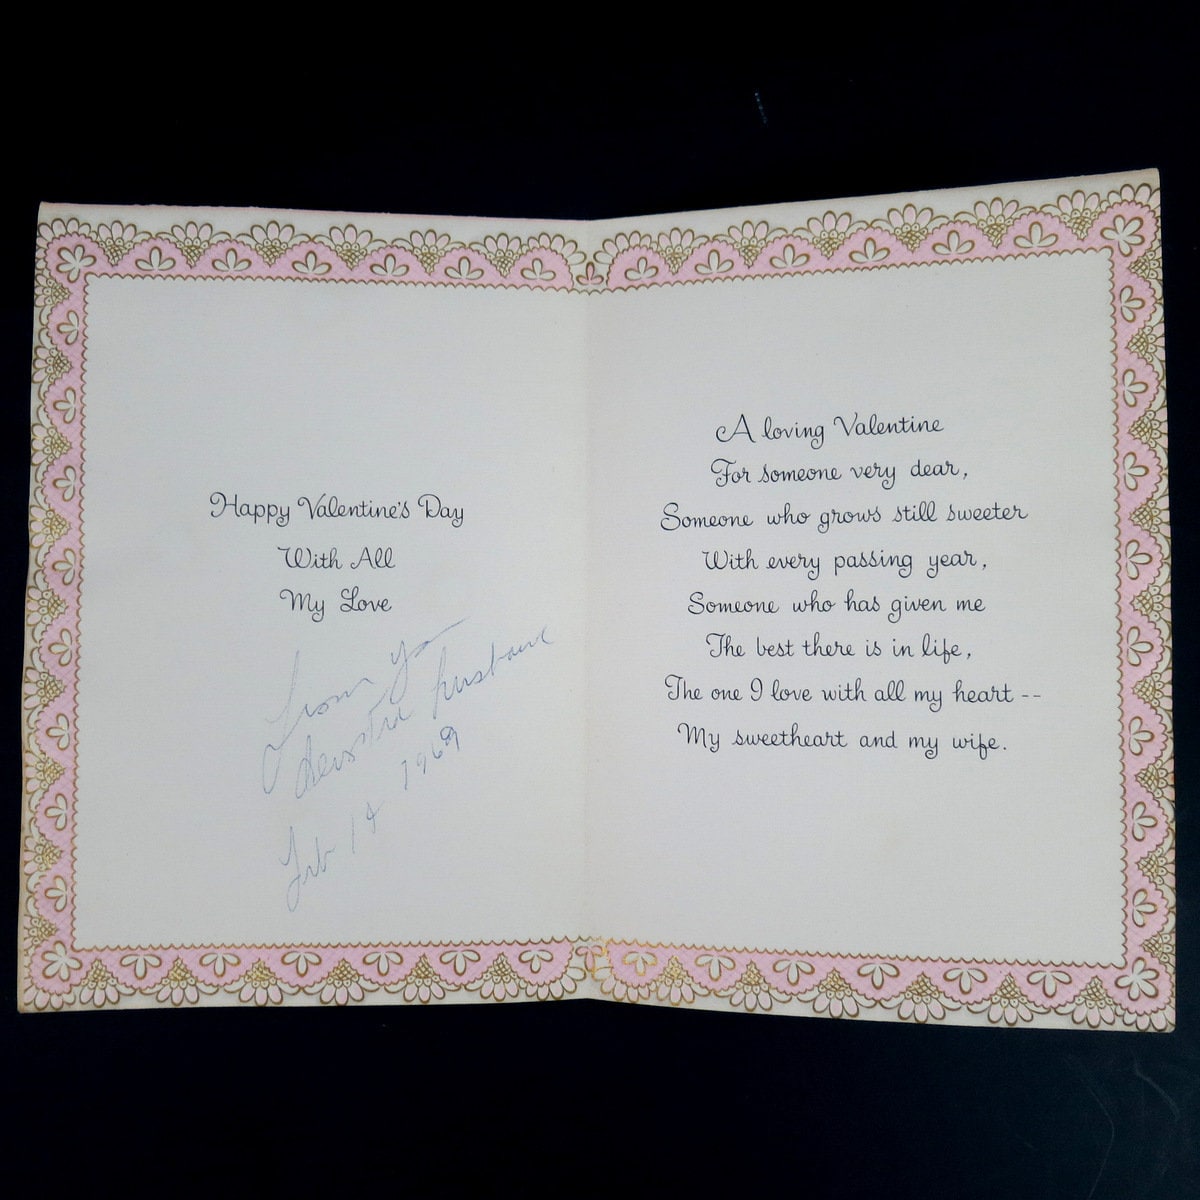 Happy Valentine's Day
With All
My Love
From
husband
Feb 14 1969
A loving Valentine
For someone very dear,
Someone who grows still sweeter
With every passing year,
Someone who has given me
The best there is in life,
The one I love with all my heart --
My sweetheart and my wife.